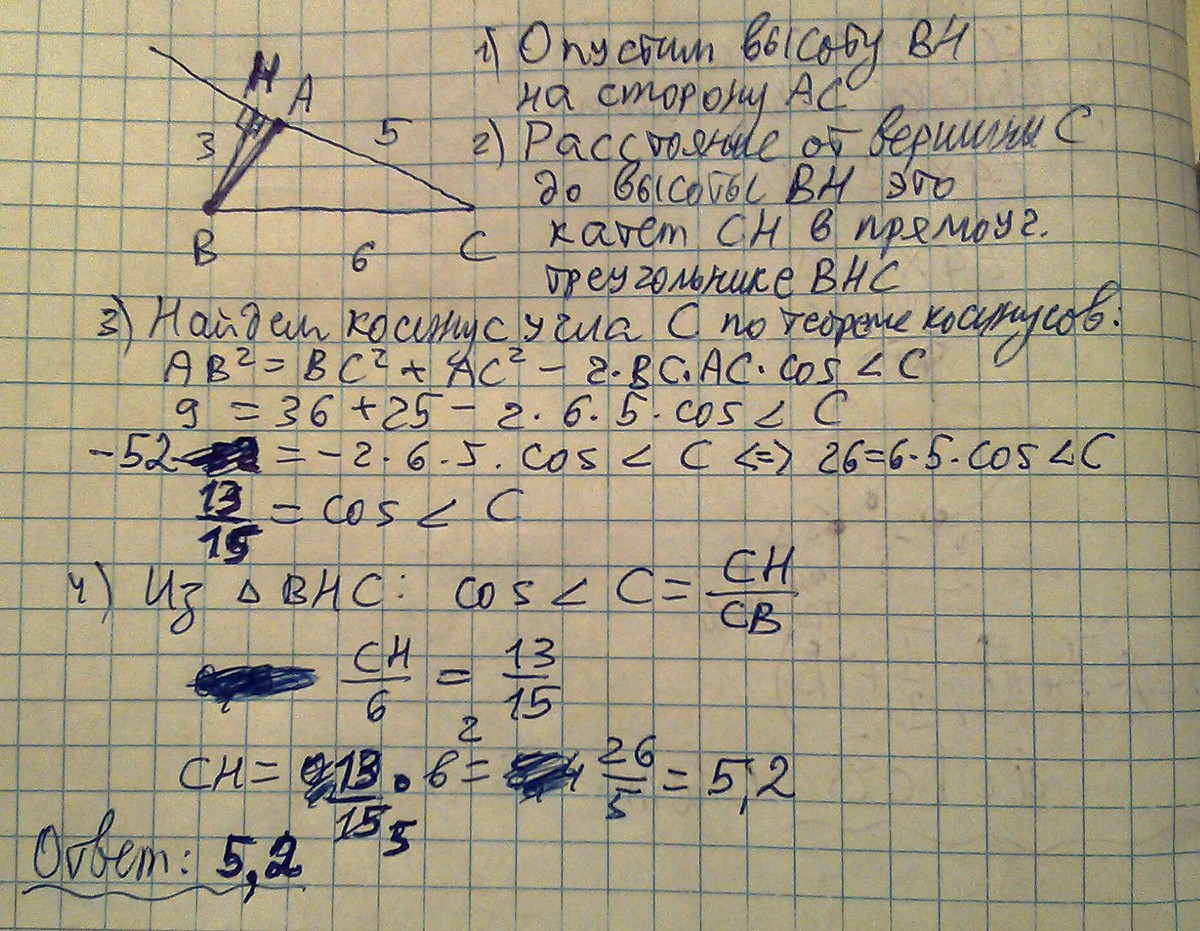 H
A
3
5
B
6
C
1) Опустим высоту BH
на сторону AC
2) Расстояние от вершины C
до высоты BH это
катет CH в прямоуг.
треугольнике BHC
3) Найдем косинус угла C по теореме косинусов:
AB² = BC² + AC² - 2·BC·AC·cos < C
9 = 36 + 25 - 2·6·5·cos < C
-52 = -2·6·5·cos < C <=> 26 = 6·5·cos < C
13/15 = cos < C
4) Из △ BHC: cos < C = CH/CB
CH/6 = 13/15
2
CH = 13/15 · 6 = 26/5 = 5,2
5
Ответ: 5,2